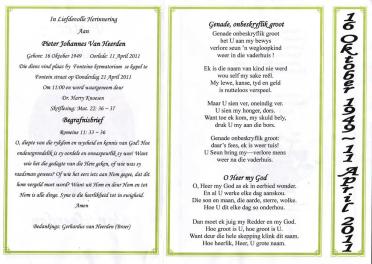 In Liefdevolle Herinnering
Aan
Pieter Johannes Van Heerden
Gebore: 16 Oktober 1949 Oorlede: 11 April 2011
Die diens vind plaas by Fonteine krematorium se kapel te
Fontein straat op Donderdag 21 April 2011
Om 11:00 en word waargeneem deur
Dr. Harry Knoesen
Skriflesing: Mat. 22: 36 – 37
Begrafnisbrief
Romeine 11: 33 – 36
O, diepte van die rykdom en wysheid en kennis van God! Hoe
ondeurgrondelik is sy oordele en onnaspeurlik sy weë! Want
wie het die gedagte van die Here geken, of wie was sy
raadsman gewees? Of wie het eers iets aan Hom gegee, dat dit
hom vergeld moet word? Want uit Hom en deur Hom en tot
Hom is alle dinge. Syne is die heerlikheid tot in ewigheid.
Amen
Bedankings: Gerhardus van Heerden (Broer)
Genade, onbeskryflik groot
Genade onbeskryflik groot
het U aan my bewys
verlore seun 'n wegloopkind
weer in die vaderhuis !
Ek is die naam van kind nie werd
wou self my sake reël.
My lewe, kanse, tyd en geld
is nutteloos verspeel.
Maar U sien ver, oneindig ver.
U sien my honger, dors.
Want toe ek kom, my skuld bely,
druk U my aan die bors.
Genade onbeskryflik groot:
daar's fees, ek is weer tuis!
U Seun bring my—verlore mens
weer na die vaderhuis.
O Heer my God
O, Heer my God as ek in eerbied wonder.
En al U werke elke dag aanskou.
Die son en maan, die aarde, sterre, wolke.
Hoe U dit elke dag so onderhou.
Dan moet ek juig my Redder en my God.
Hoe groot is U, hoe groot is U.
Want deur die hele skepping klink dit saam.
Hoe heerlik, Heer, U grote naam.
16 Oktober 1949 – 11 April 2011